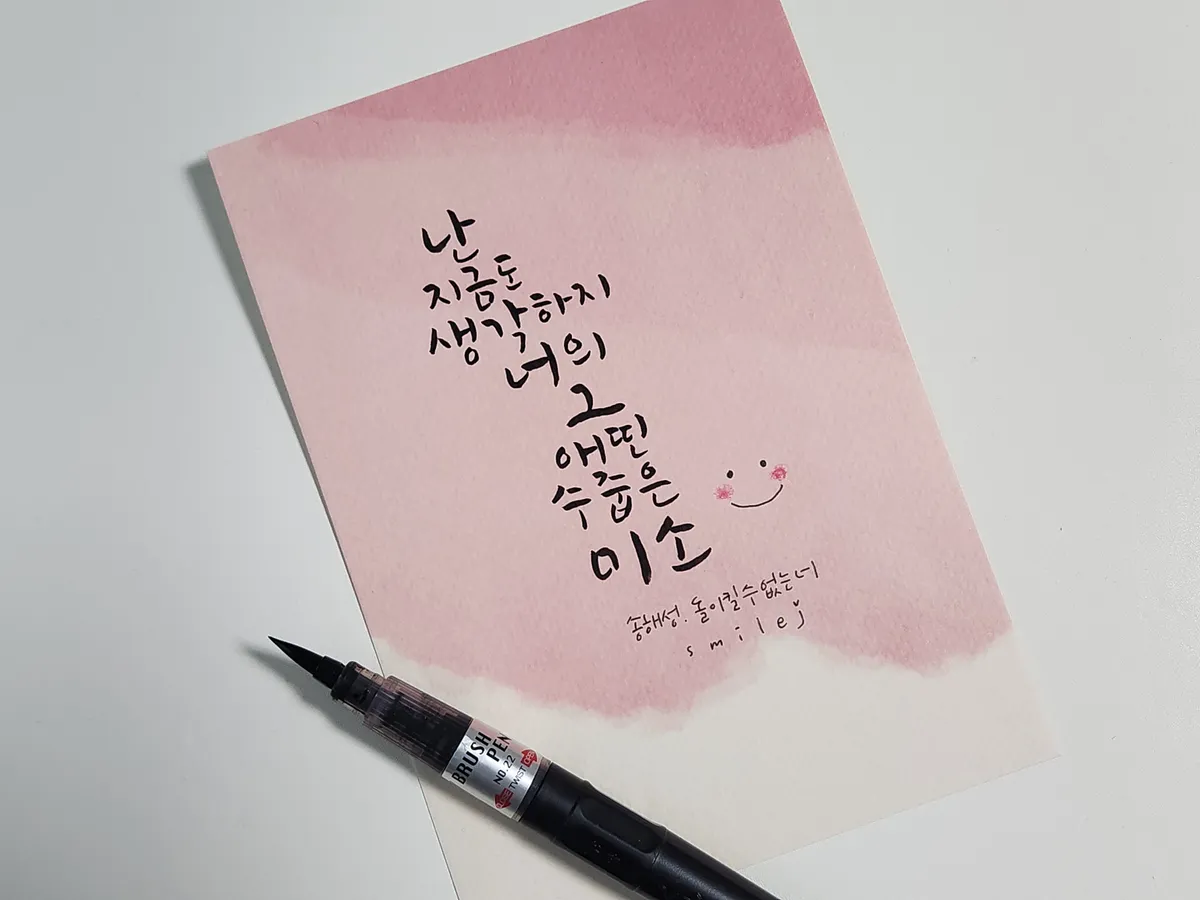 난
지금도
생각하지
너의
그
애띤
수줍은
미소
송해성. 돌이킬 수 없는 너
smilej
BRUSH
PEN
NO.22
TWIST